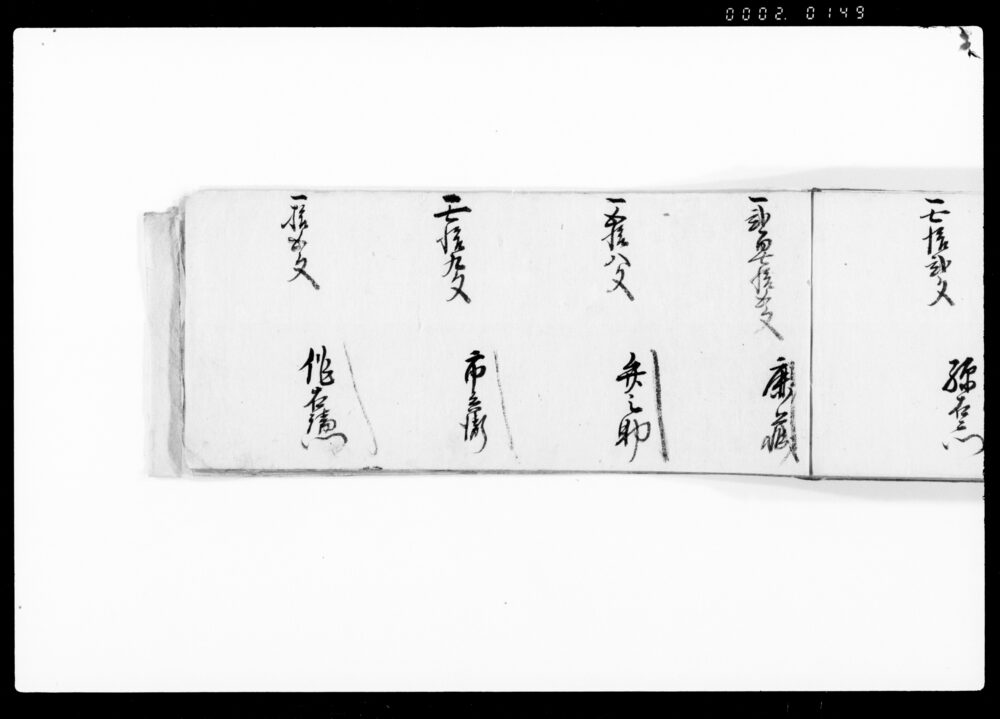 0002.0149
一七拾弐文
孫右衛門
一弐百七拾五文
康蔵
一五拾八文
兵之助
一七拾九文
市兵衛
一拾五文
作右衛門